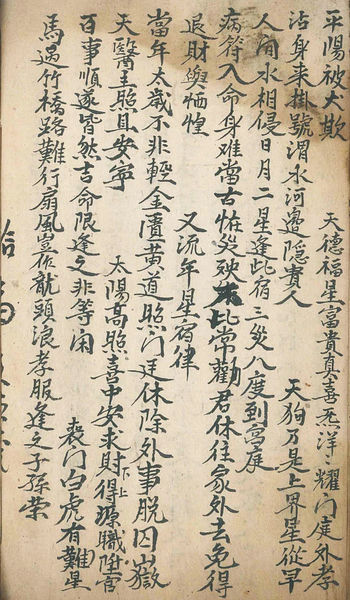 平陽被犬欺　天德福星富貴真喜氣洋洋耀門庭外孝
沾身来掛號渭水河邊隱貴人　天狗乃是上界星從早
人间水相侵日月二星逢此宿三災八度到宫庭
病符入命身难當古怪災殃不比常勸君休往家外去免得
退財與恓惶　又流年星宿律
當年太歲不非輕金匱黄道照门廷休除外事脱囚嶽
天醫主照且安寕　太陽高照喜中安求財得源職陞官
百事順遂皆然吉命限逢之非等闲　丧门白虎有難星
馬過竹橋路難行扇風豈作龍頭浪孝服逢之子孫荣